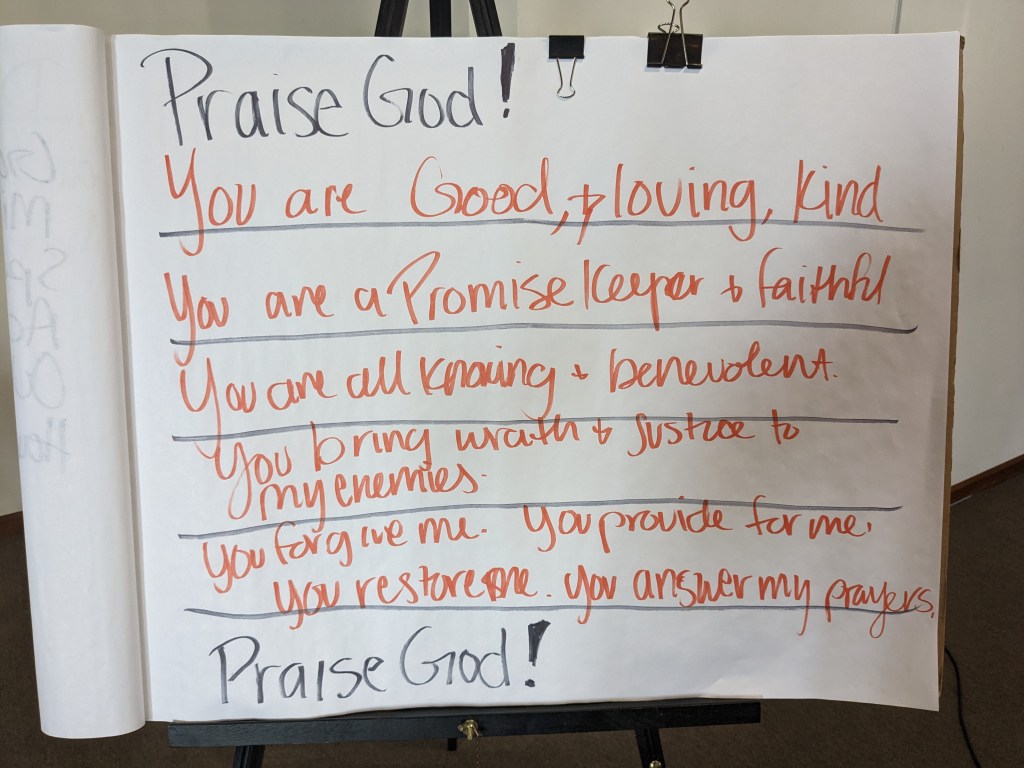 Praise God!
You are Good, + loving, kind
You are a Promise Keeper + faithful
You are all knowing + benevolent.
You bring wrath + Justice to
my enemies.
You forgive me. You provide for me.
You restore me. You answer my prayers.
Praise God!